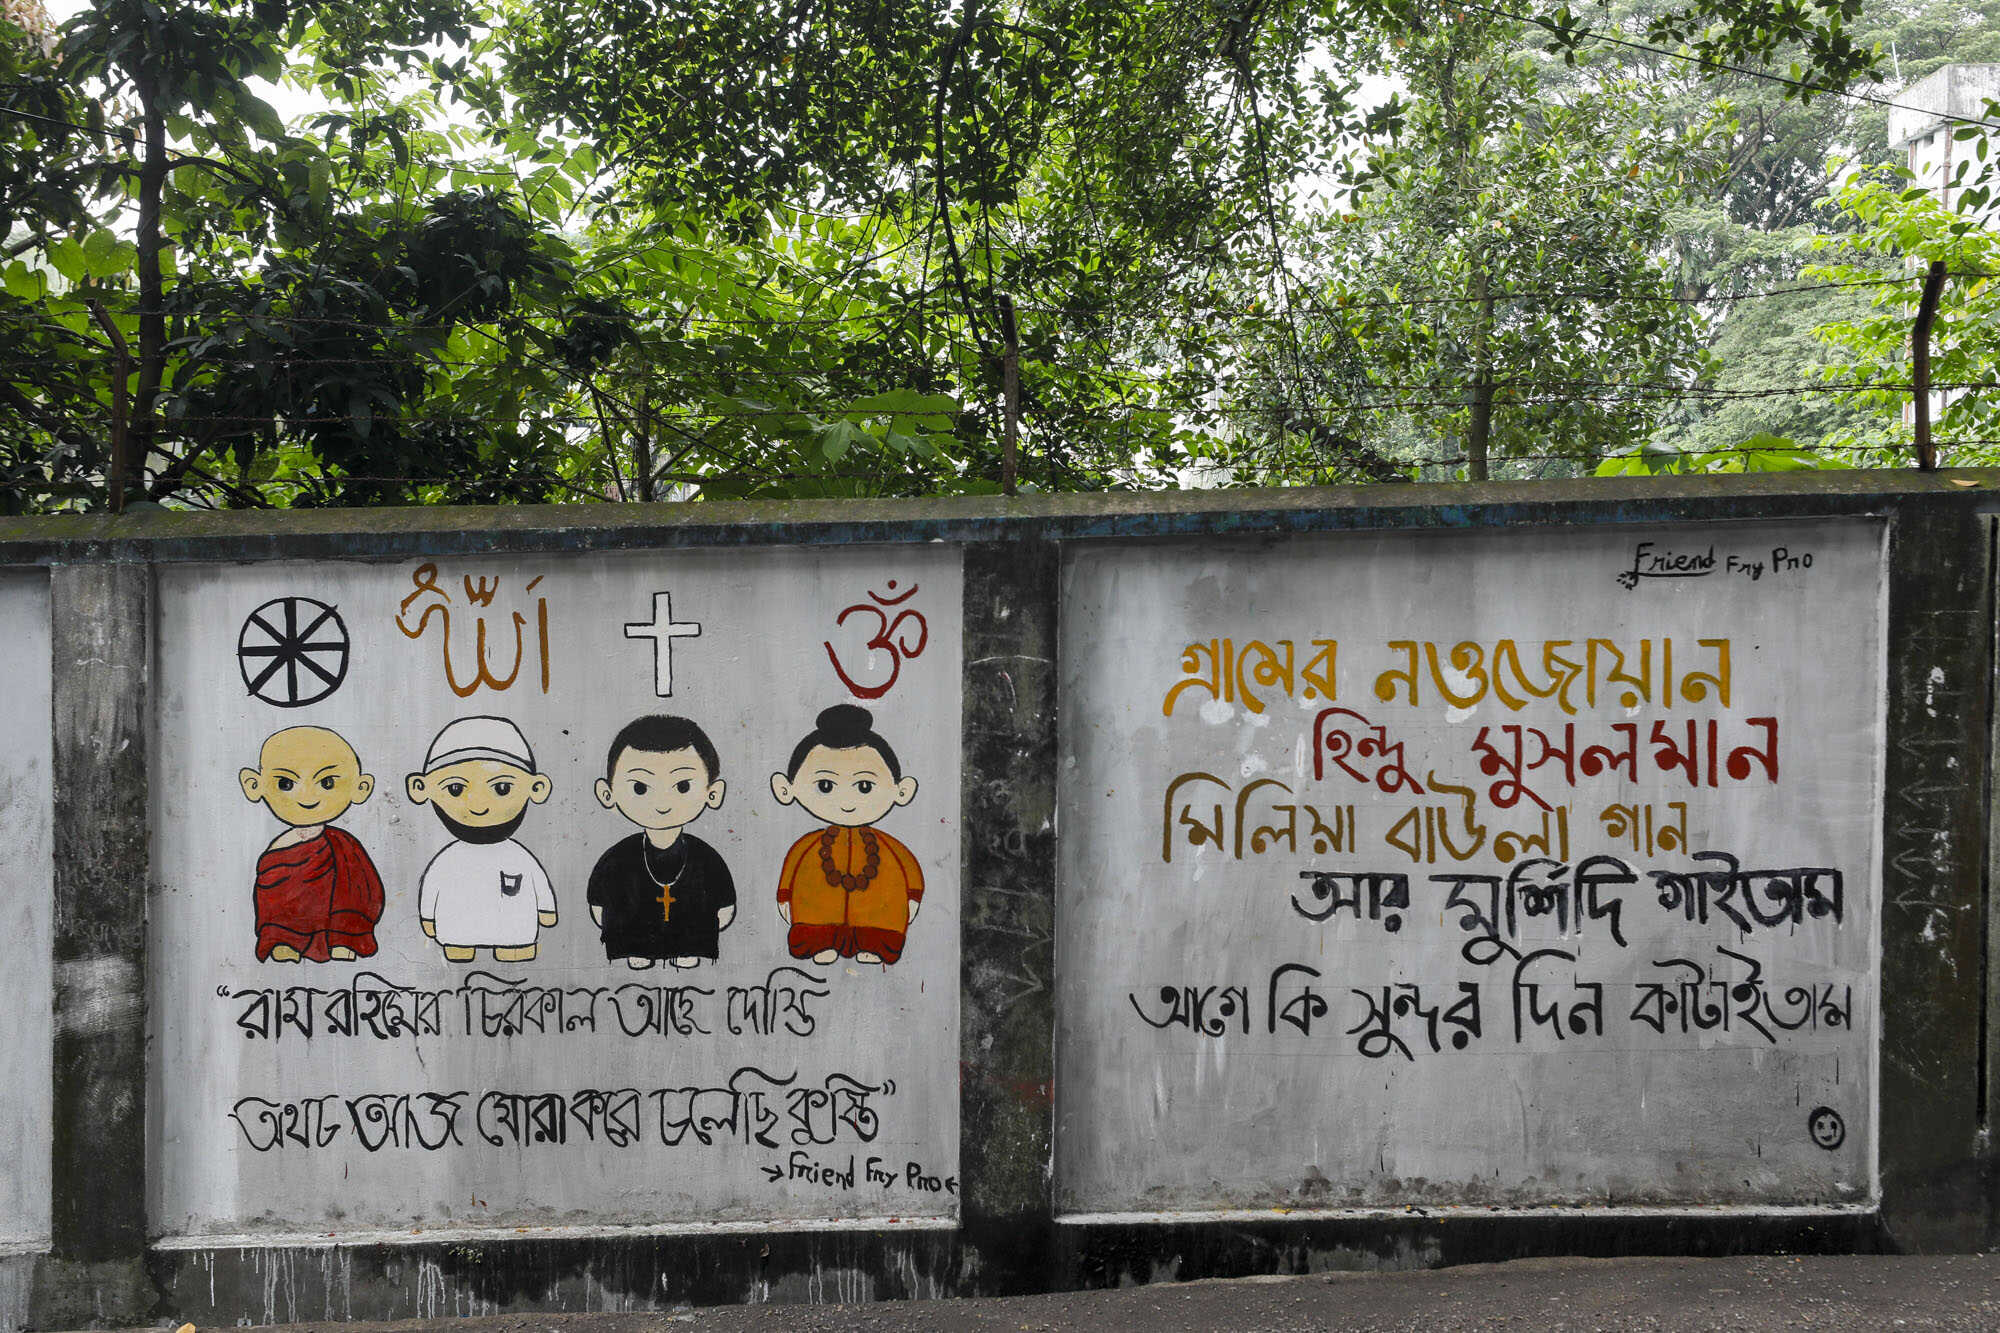 الله
ॐ
“রাম রহিমের চিরকাল আছে দোস্তি
অথচ আজ ঘোরা করে চলেছি কুস্তি”
→ Friend Fry Pro ←
Friend Fry Pro
গ্রামের নওজোয়ান
হিন্দু মুসলমান
মিলিয়া বাউলা গান
আর মুর্শিদি গাইতাম
আগে কি সুন্দর দিন কাটাইতাম